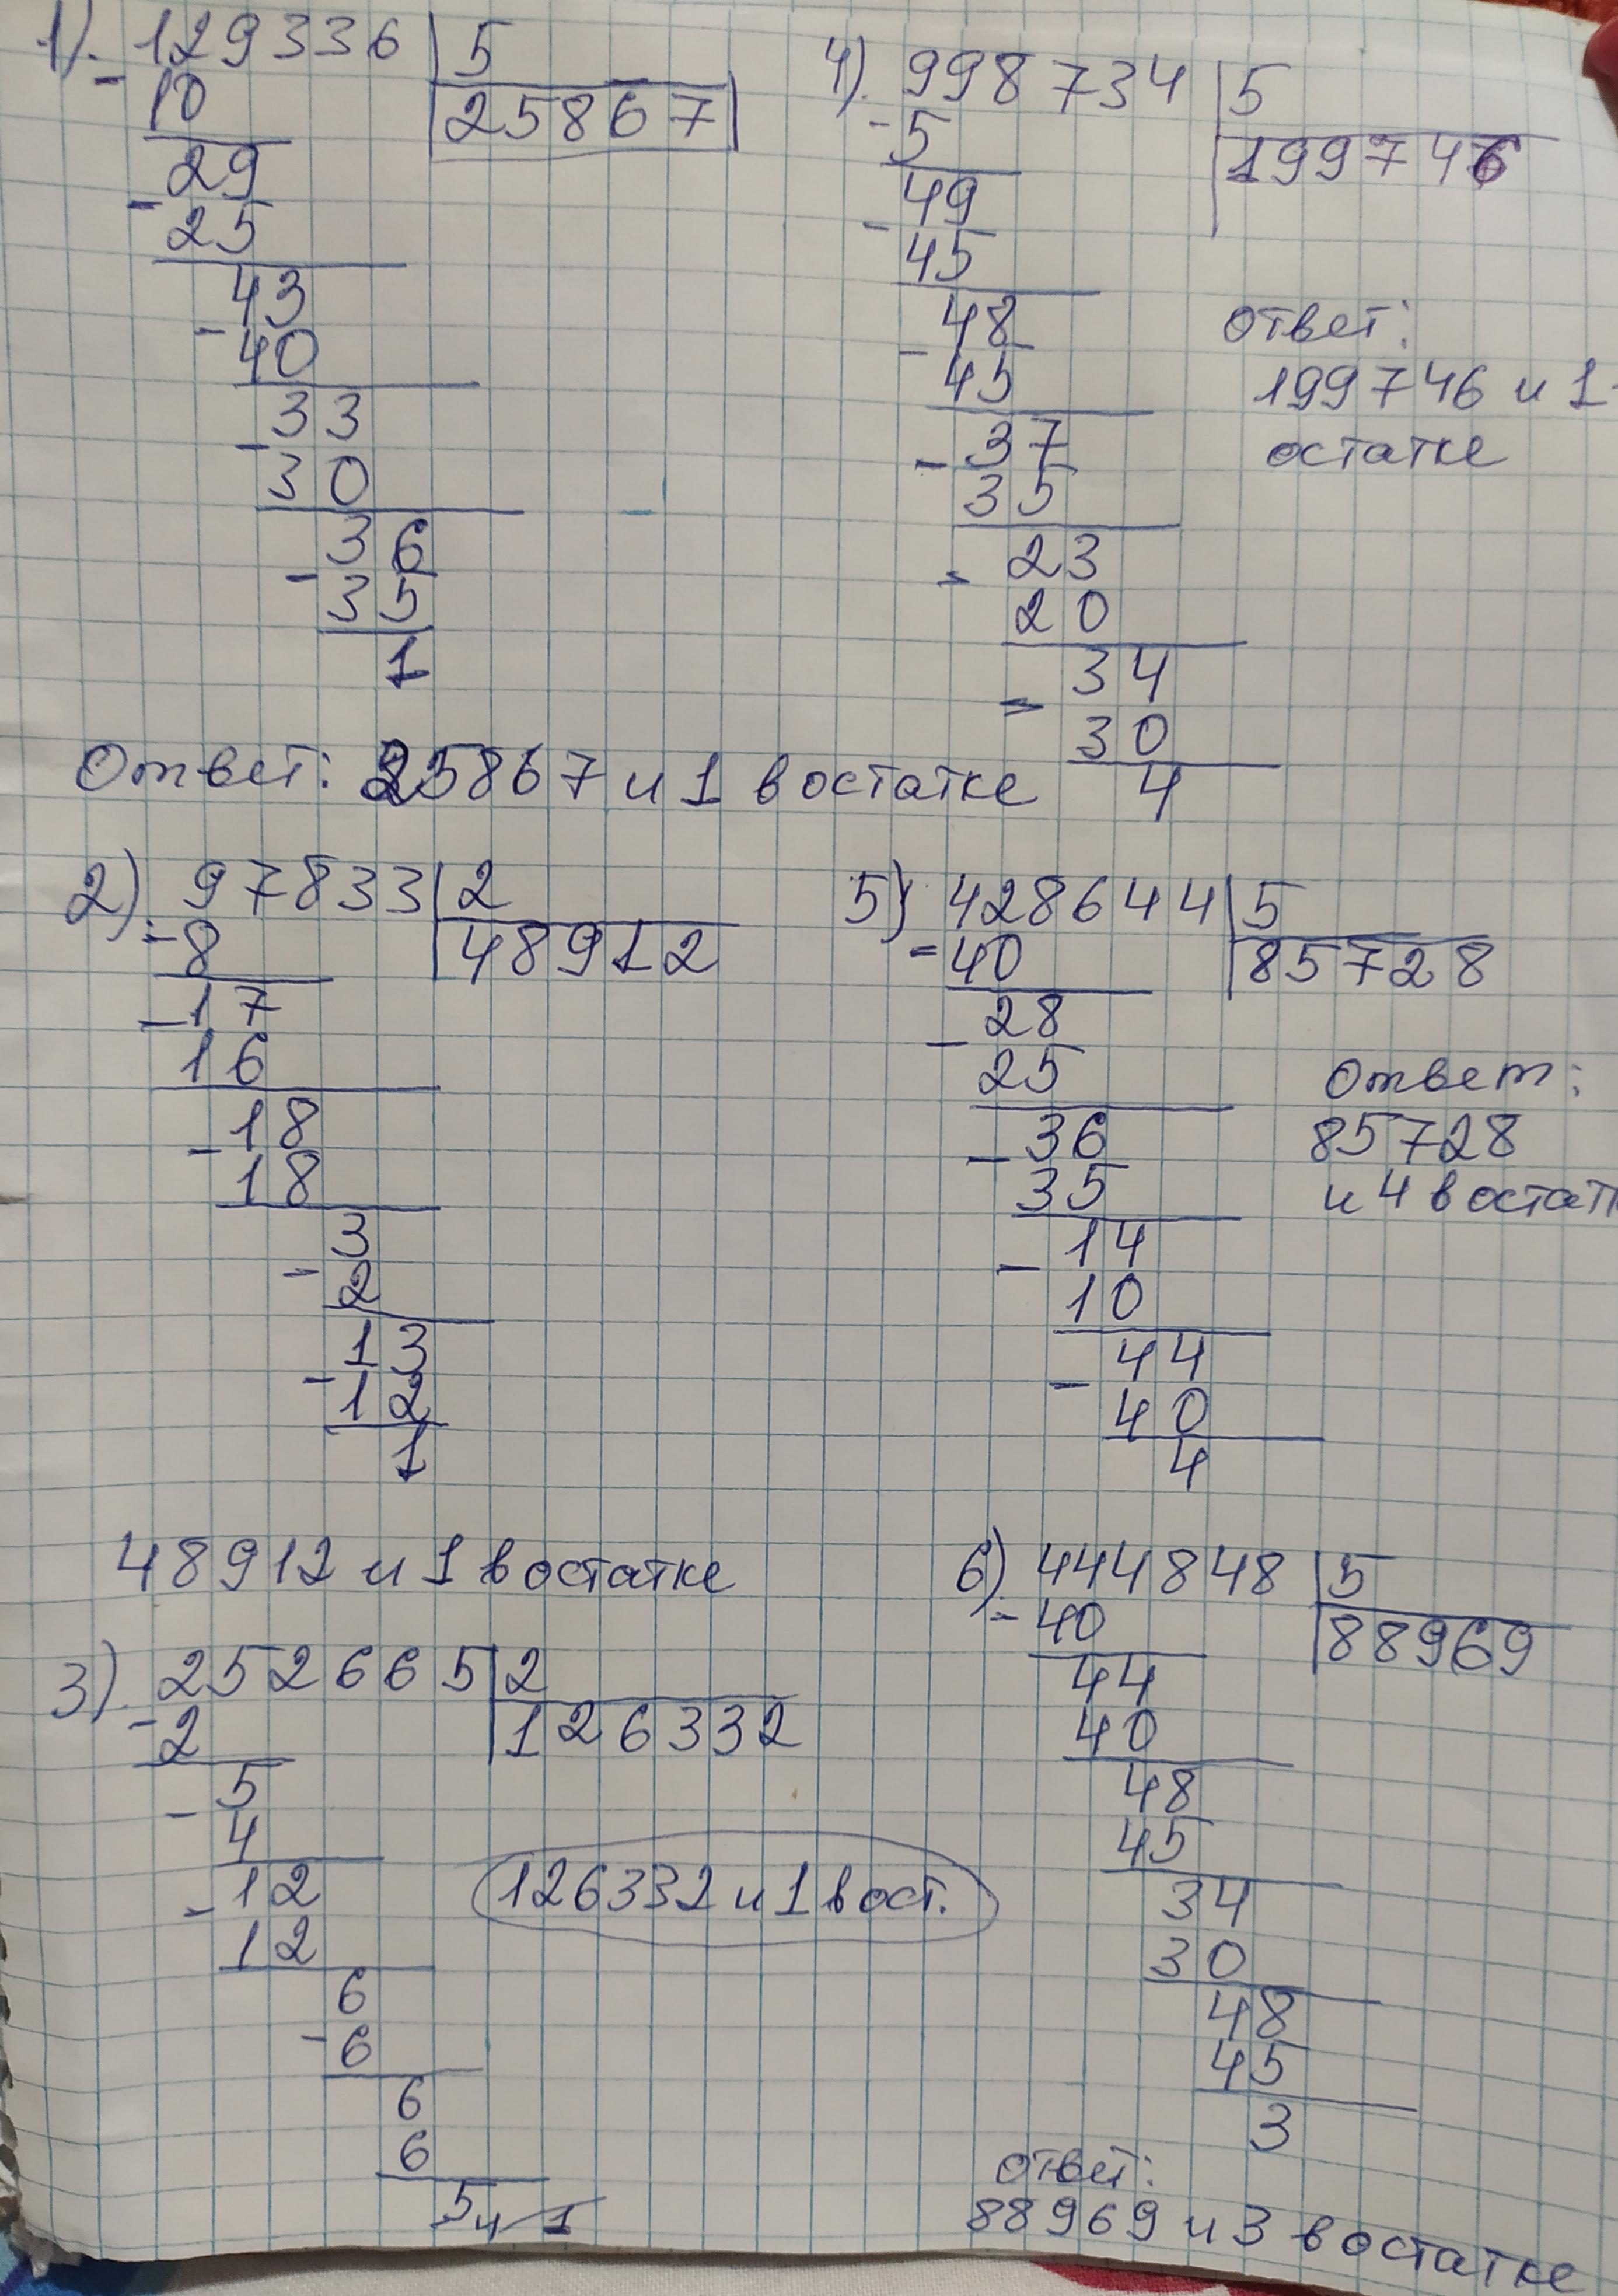 1). 129336 5
- 10 25867
29
- 25
43
- 40
33
- 30
36
- 35
1
Ответ: 25867 и 1 в остатке
2). 97833 2
- 8 48912
- 17
16
- 18
18
3
- 2
13
- 12
1
48912 и 1 в остатке
3). 252665 2
- 2 126332
5
- 4
12
- 12
6
- 6
6
6
5
4 1
126332 и 1 в ост.
4). 998734 5
- 5 199746
49
- 45
48
- 45
37
- 35
23
- 20
34
- 30
4
ответ:
199746 и 1
остатке
5) 428644 5
- 40 85728
28
- 25
36
- 35
14
- 10
44
- 40
4
Ответ:
85728
и 4 в остат
6) 444848 5
- 40 88969
44
40
48
45
34
30
48
45
3
ответ:
88969 и 3 в остатке